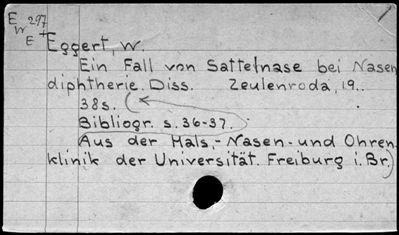 E 297
W
E
Eggert, W.
Ein Fall von Sattelnase bei Nasen
diphtherie. Diss. Zeulenroda, 19..
38s.
Bibliogr. s. 36-37.
Aus der Hals,- Nasen- und Ohren
klinik der Universität. Freiburg i. Br)